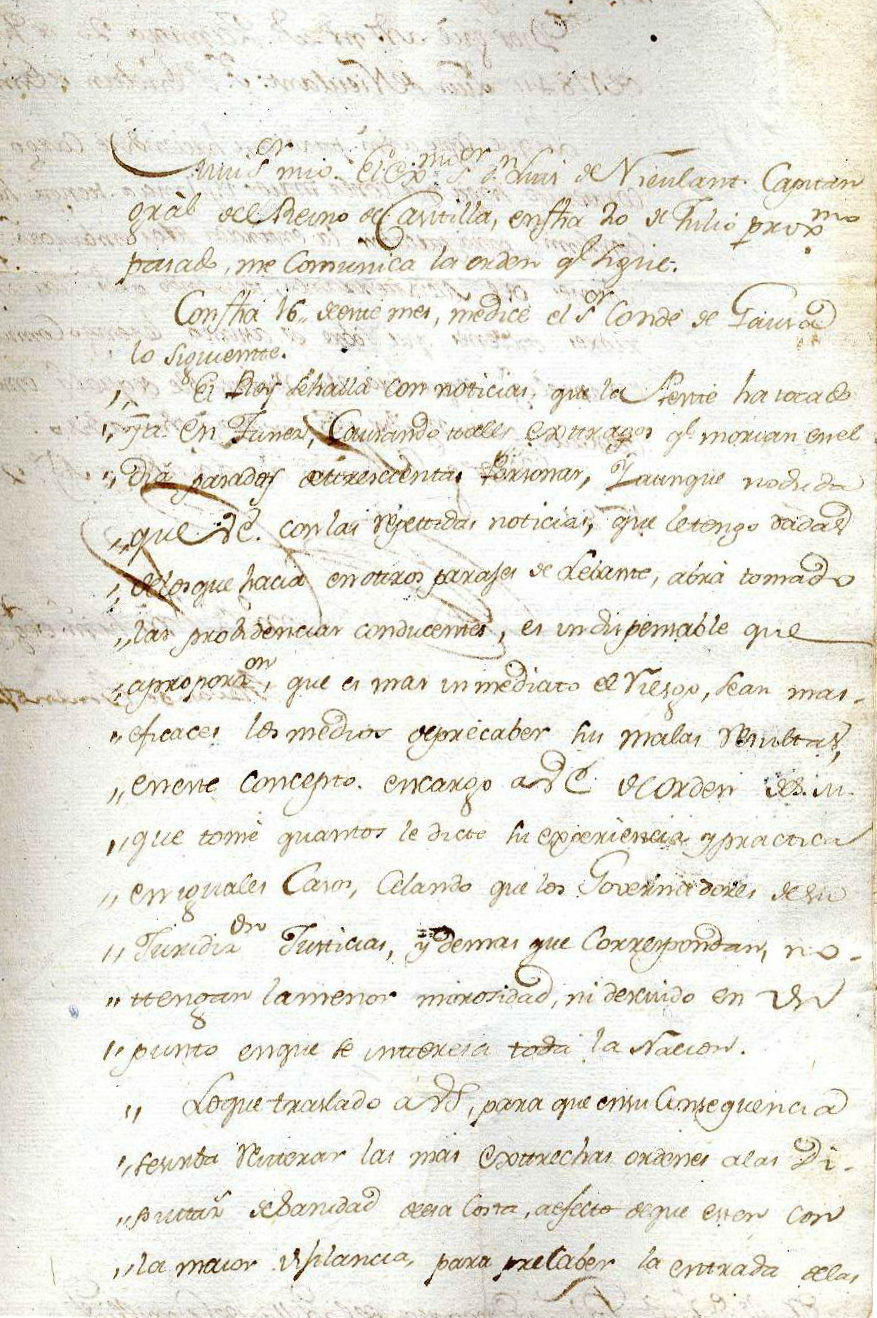 Mui Sr. mio. El Exmo. Sr. Dn. Luis de Nieulant. Capitan
gràl del Reino de Castilla, en fha 20 de Julio proxmo
pasado, me Comunica la orden qe sigue.
Con fha 16,, de este mes, me dice el Sr. Conde de Gausa
lo siguientte.
,, El Rey se halla con noticias, que la Peste ha tocado
,, ya en Tunez, Causando tales exttragos qe morian en el
,, dia pasados de trescientas Personas, Y aunque no duda
,, que VE. con las repettidas noticias, que le tengo dadas
,, de los que hacia en ottros parajes de Lebante, abrà tomado
,, las probidencias conducentes, es indispensable que
,, a proporzon, que es mas inmediato el Riesgo, sean mas
,, eficaces los medios de precaber sus malas resultas,
,, en este concepto. encargo a VE. de Orden de S.M.
,, que tome quantos le dicte su experiencia y practica
,, en iguales Casos, Celando que los Governadores de su
,, Juridizon Justicias, y demas que Correspondan, no
,, ttengan la menor morosidad, ni descuido en un
,, punto en que se intteresa toda la Nacion.
,, Lo que traslado à VS, para que en su Consequencia
,, se sirba reitterar las mas exttrechas ordenes a las Di-
,, puttass de Sanidad de esa Costa, a efecto de que esten con
,, la maior vijilancia, para precaber la entrada de las